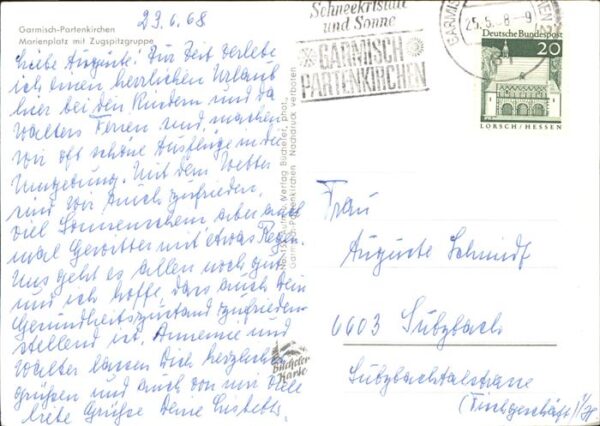 23.6.68
Garmisch-Partenkirchen
Marienplatz mit Zugspitzgruppe
Liebe Auguste! Zur Zeit verlebe
ich einen herrlichen Urlaub
hier bei den Kindern und da
Walters Ferien sind, machen
wir oft schöne Ausflüge in die
Umgebung. Mit dem Wetter
sind wir auch zufrieden,
viel Sonnenschein aber auch
mal Gewitter mit etwas Regen.
Uns geht es allen noch gut
und ich hoffe, dass auch Dein
Gesundheitszustand zufrieden-
stellend ist. Annemie und
Walter lassen Dich herzlichst
grüßen und auch von mir viele
liebe Grüße Deine Lisbeth
Verlag Bücheler, phot.
Garmisch-Partenkirchen Nachdruck verboten
Bücheler
Karte
Schneekristall
und Sonne
GARMISCH
PARTENKIRCHEN
25.6.68-9
81
Deutsche Bundespost
20
LORSCH/HESSEN
Frau
Auguste Schmidt
6603 Sulzbach
Sulzbachtalstrasse
(Fischgeschäft)